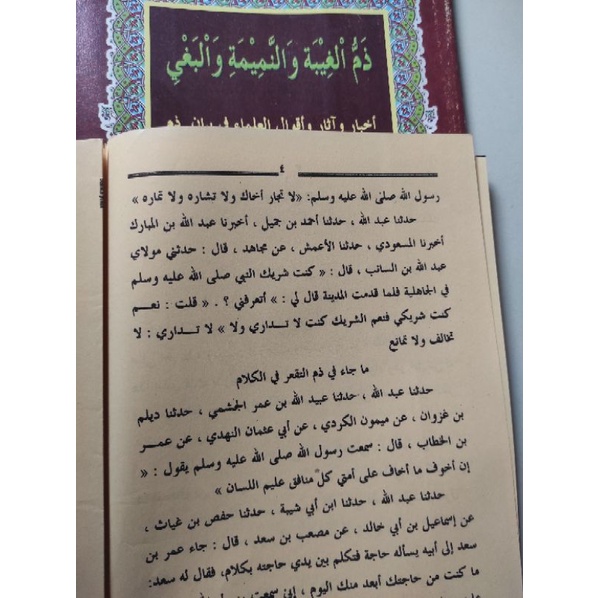 ذَمُّ الْغِيبَةِ وَالنَّمِيمَةِ وَالْبَغْيِ
أخبار وآثار وأقوال العلماء في بيان ذم
٤
رسول الله صلى الله عليه وسلم: «لا تجار أخاك ولا تشاره ولا تماره »
حدثنا عبد الله ، حدثنا أحمد بن جميل ، أخبرنا عبد الله بن المبارك
أخبرنا المسعودي ، حدثنا الأعمش ، عن مجاهد ، قال : حدثني مولاي
عبد الله بن السائب ، قال : « كنت شريك النبي صلى الله عليه وسلم
في الجاهلية فلما قدمت المدينة قال لي : » أتعرفني ؟ . « قلت : نعـم
كنت شريكي فنعم الشريك كنت لا تـداري ولا » لا تـداري : لا
تخالف ولا تمانع
ما جاء في ذم التقعر في الكلام
حدثنا عبد الله ، حدثنا عبيد الله بن عمر الجشمي ، حدثنا ديلم
بن غزوان ، عن ميمون الكردي ، عن أبي عثمان النهدي ، عن عمـر
بن الخطاب ، قال : سمعت رسول الله صلى الله عليه وسلم يقول : «
إن أخوف ما أخاف على أمتي كلّ منافق عليم اللسان »
حدثنا عبد الله ، حدثنا ابن أبي شيبة ، حدثنا حفص بن غياث ،
عن إسماعيل بن أبي خالد ، عن مصعب بن سعد ، قال : جاء عمر بن
سعد إلى أبيه يسأله حاجة فتكلم بين يدي حاجته بكلام، فقال له سعد:
ما كنت من حاجتك أبعد منك اليوم ، إني سمعت رسول الله صلى